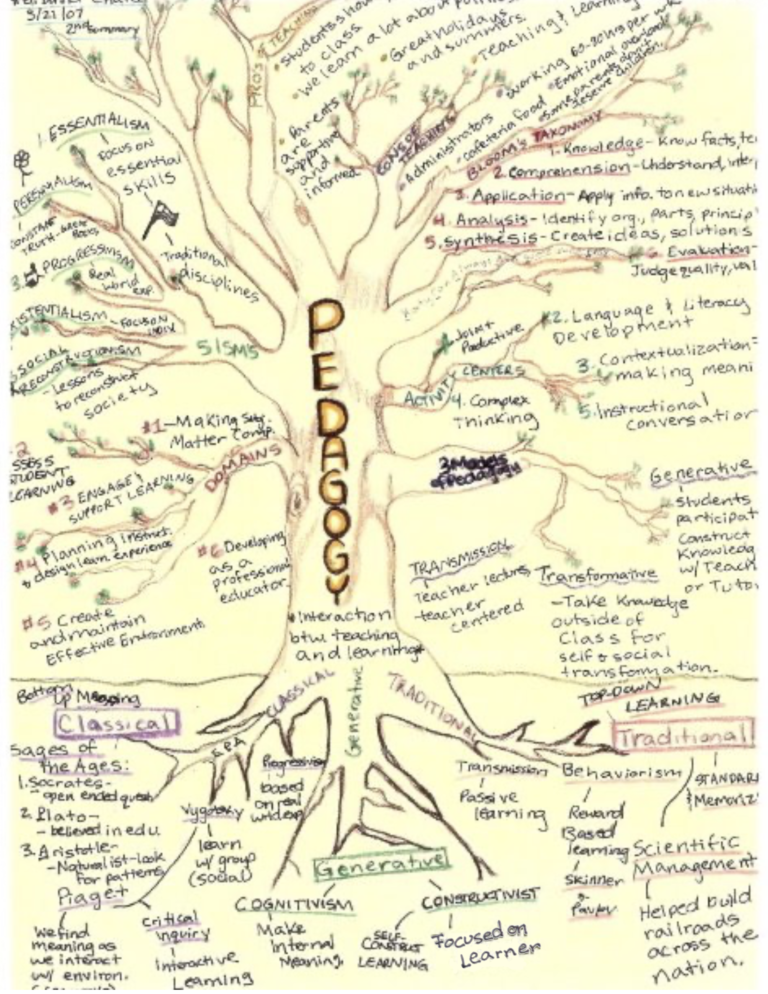 3/21/07
2nd Summary
PRO'S OF TEACHING
to class
We learn a lot about
Great holidays
and summers.
Teaching & Learning
Parents
are
supportive
and
informed
CONS OF
TEACHING
Administrators
cafeteria food
working 60-80 hrs per
Emotional overload
some parents don't
deserve children.
BLOOM'S TAXONOMY
1. Knowledge - Know facts,
2. Comprehension - Understand,
3. Application - Apply info. to new
4. Analysis - Identify org., parts,
5. Synthesis - Create ideas, solutions
6. Evaluation -
Judge quality,
1. ESSENTIALISM
Focus on
essential
skills
Traditional
disciplines
PERENNIALISM
CONSTANT
TRUTH - GREAT
BOOKS
3. PROGRESSIVISM
Real
world
exp.
FOCUS ON
INDIV.
SOCIAL
RECONSTRUCTIONISM
- Lessons
to reconstruct
society
5 ISMS
PEDAGOGY
1. Joint
Productive
ACTIVITY CENTERS
2. Language & Literacy
Development
3. Contextualization =
making
4. Complex
Thinking
5. Instructional
DOMAINS
#1 - Making Subj.
Matter Comp.
#3 ENGAGE &
SUPPORT LEARNING
#4 Planning Instruct.
& design learn. experience
#5 Create
and maintain
Effective Environment
#6 Developing
as a
professional
educator.
3 Models
of Pedagogy
TRANSMISSION
Teacher lectures
- teacher
centered
Transformative
- Take Knowledge
outside of
Class for
self & social
transformation.
Generative
Students
Construct
w/
or
• Interaction
btw. teaching
and learning
CLASSICAL
Generative
TRADITIONAL
Bottom Up
Classical
Sages of
the Ages:
1. Socrates -
open ended quest.
2. Plato -
- believed in edu.
3. Aristotle -
- Naturalist - look
for patterns
Piaget
We find
meaning as
we interact
w/ environ.
Vygotsky
learn
w/ group
(social)
Critical
inquiry
Interactive
Learning
Progressivism
based
on real
world exp.
Generative
COGNITIVISM
Make
Internal
Meaning.
CONSTRUCTIVIST
SELF-
CONSTRUCT
LEARNING
Focused on
Learner
TOP-DOWN
LEARNING
Traditional
Transmission
Passive
learning
Behaviorism
Reward
Based
learning
Skinner
&
Pavlov
Scientific
Management
Helped build
railroads
across the
nation.